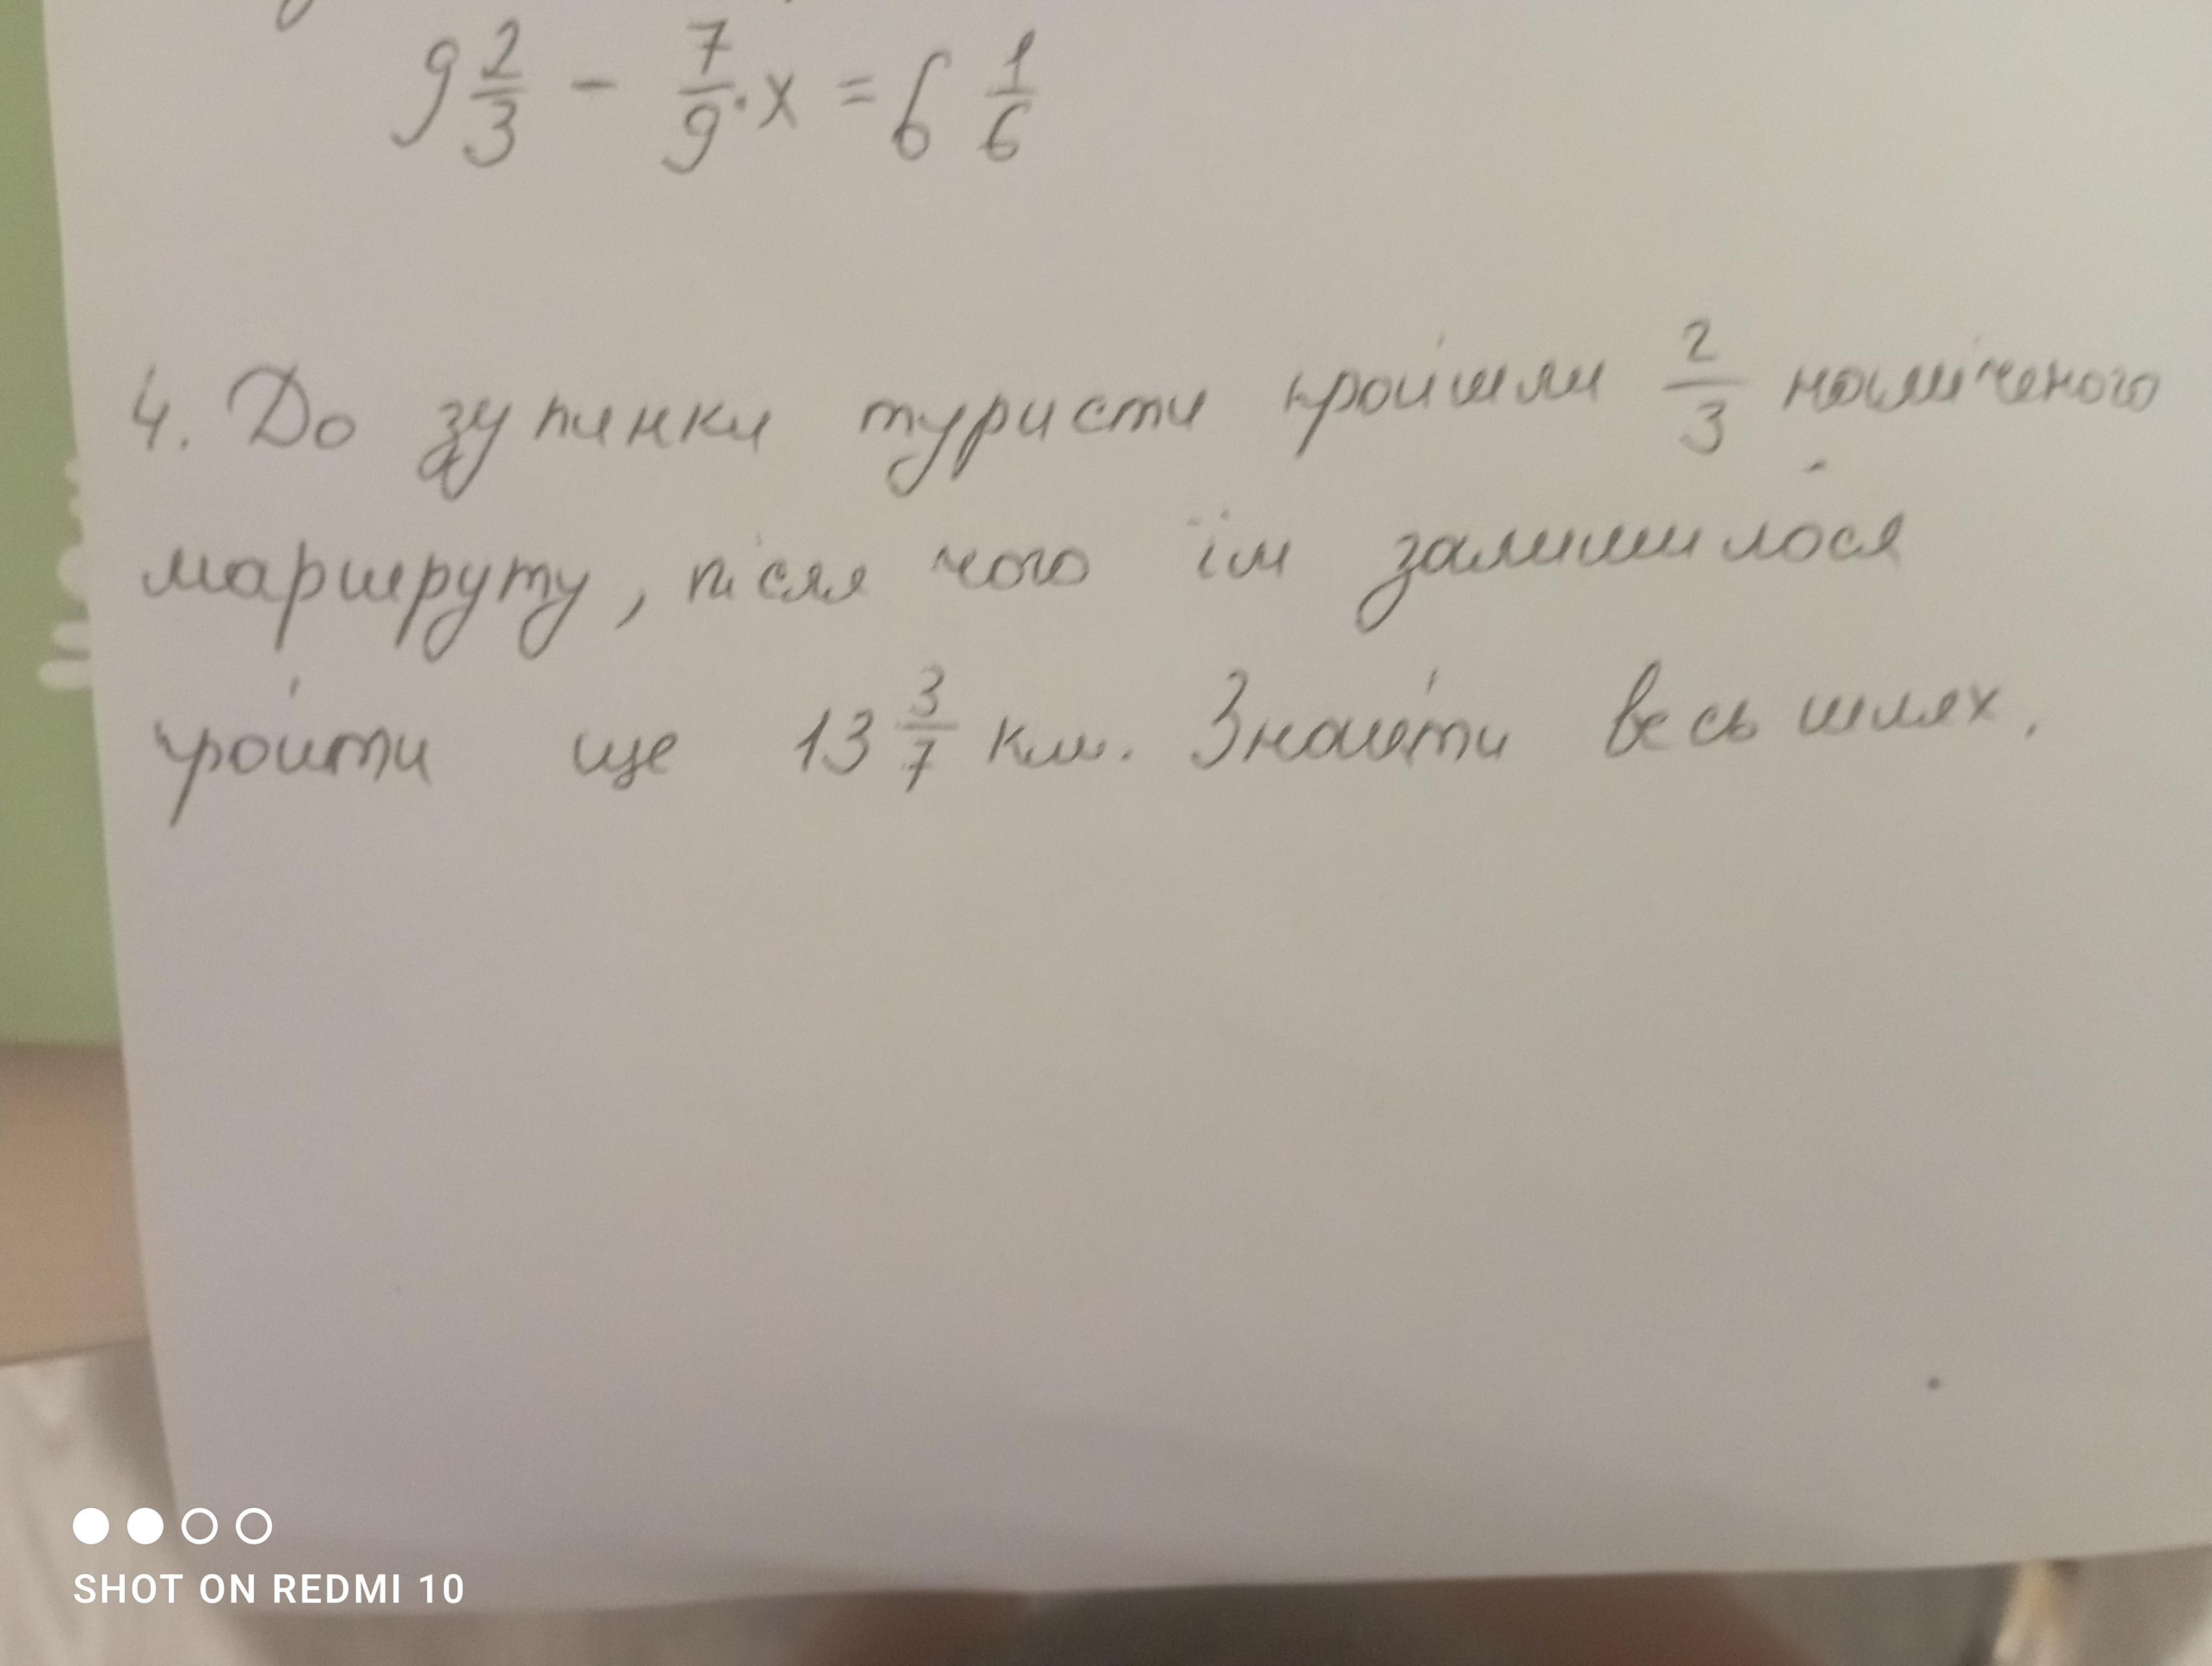 9 2/3 - 7/9 · x = 6 1/6
4. До зупинки туристи пройшли 2/3 наміченого
маршруту, після чого їм залишилося
пройти ще 13 3/7 км. Знайти весь шлях.
SHOT ON REDMI 10